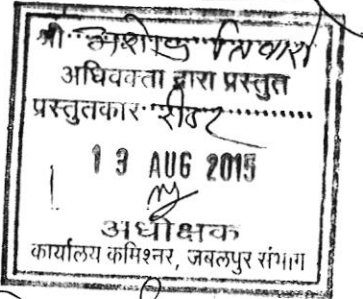 श्री अशोक तिवारी
अधिवक्ता द्वारा प्रस्तुत
प्रस्तुतकार रीडर
13 AUG 2015
अधीक्षक
कार्यालय कमिश्नर, जबलपुर संभाग